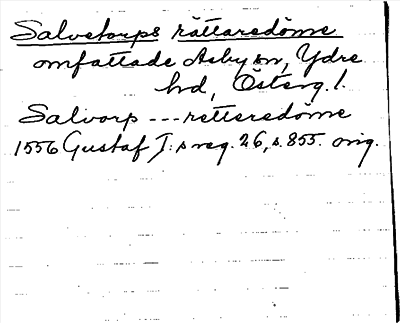 Salvetorps rättaredöme
omfattade Asby sn, Ydre
hd, Österg. l.
Salvorp --- rettaredöme
1556 Gustaf I:s reg. 26, s. 855. orig.